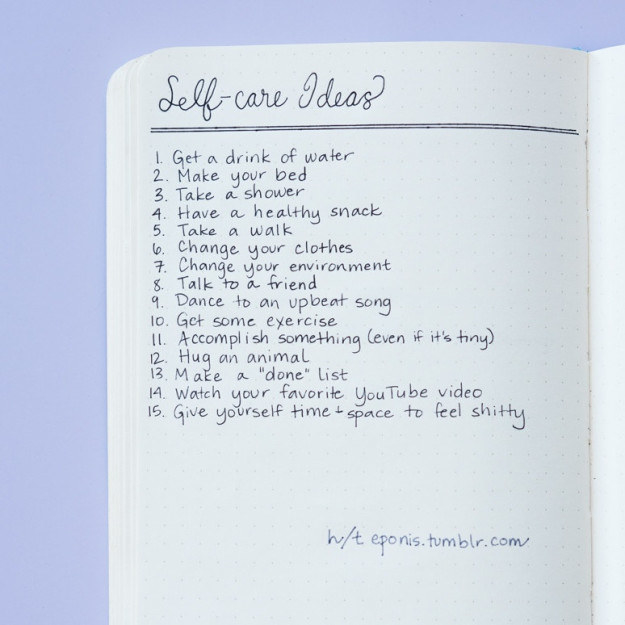 Self-care Ideas
1. Get a drink of water
2. Make your bed
3. Take a shower
4. Have a healthy snack
5. Take a walk
6. Change your clothes
7. Change your environment
8. Talk to a friend
9. Dance to an upbeat song
10. Get some exercise
11. Accomplish something (even if it's tiny)
12. Hug an animal
13. Make a "done" list
14. Watch your favorite YouTube video
15. Give yourself time + space to feel shitty
h/t eponis.tumblr.com